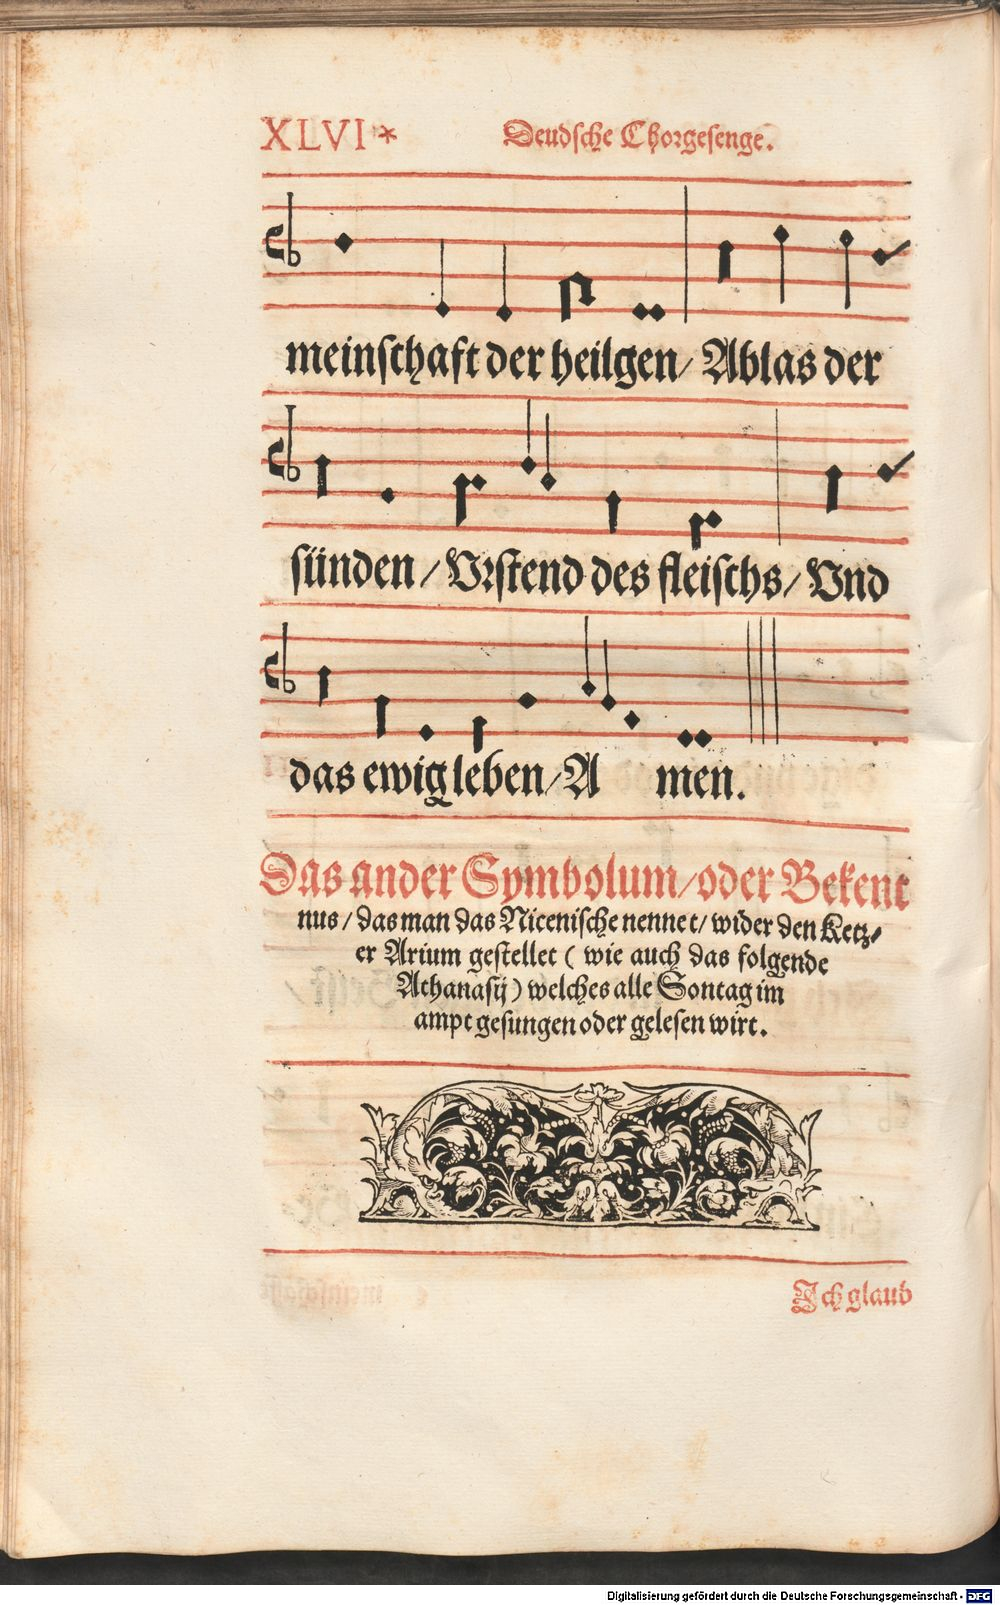 XLVI * Deudsche Chorgesenge.
meinschaft der heilgen/ Ablas der
sünden / Vrstend des fleischs/ Vnd
das ewig leben/ A men.
Das ander Symbolum/ oder Bekent
nus/ das man das Nicenische nennet/ wider den Ketz/
er Arium gestellet ( wie auch das folgende
Athanasij ) welches alle Sontag im
ampt gesungen oder gelesen wirt.
Ich glaub
Digitalisierung gefördert durch die Deutsche Forschungsgemeinschaft - DFG